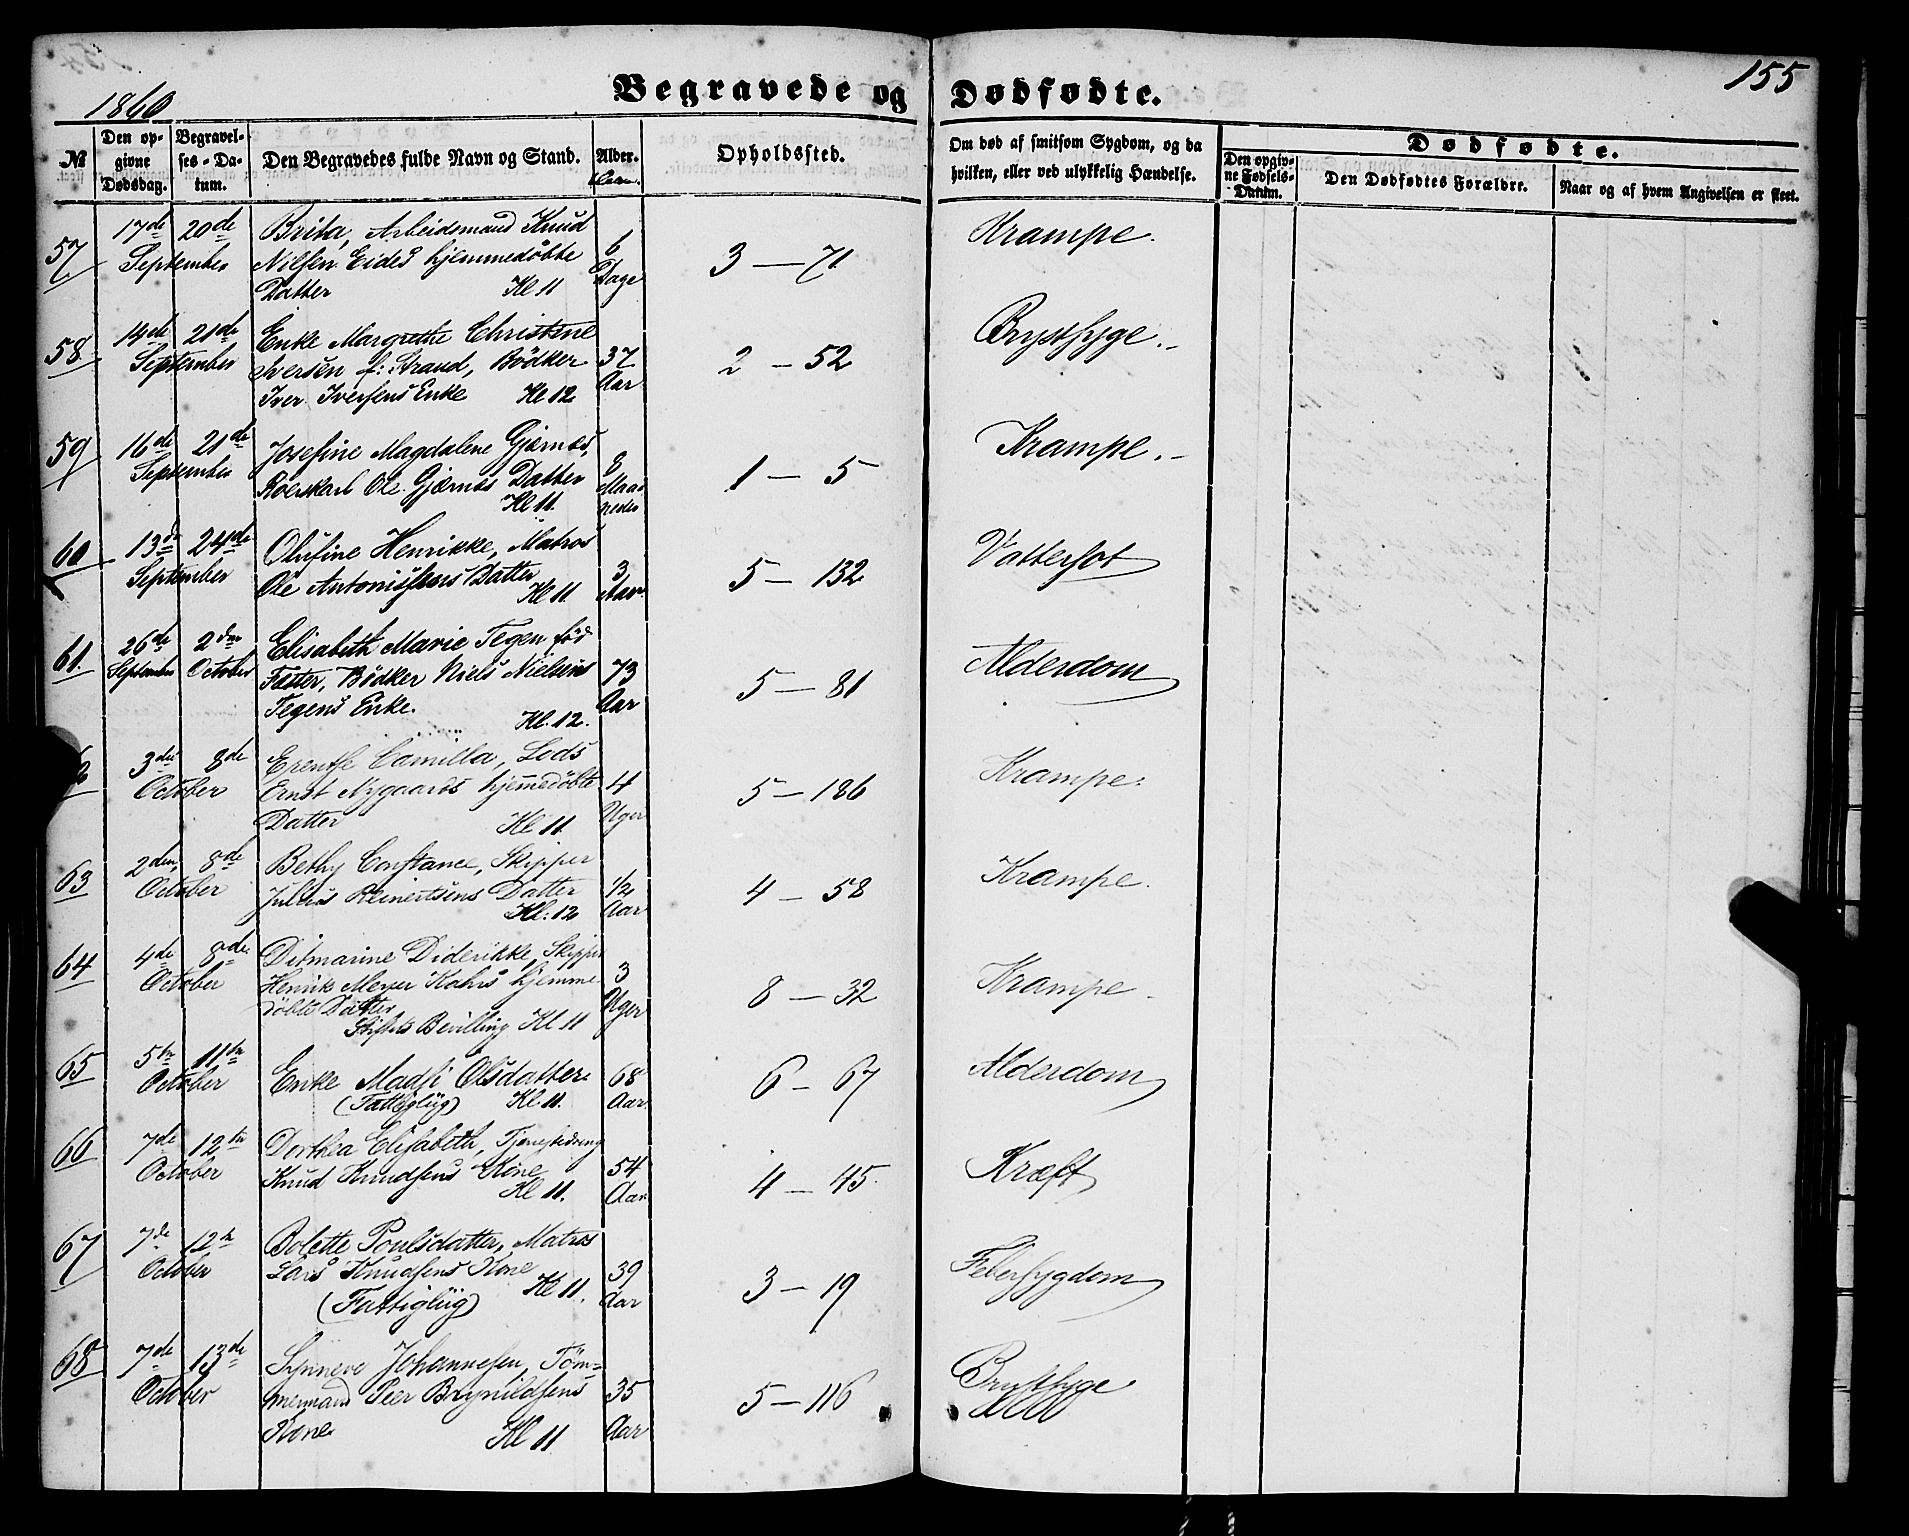 155
1860
Begravede og Dødfødte.
№
Den op-
givne
Dødsdag.
Begravel-
ses-Da-
tum.
Den Begravedes fulde Navn og Stand.
Alder.
Opholdssted.
Om død af smitsom Sygdom, og da
hvilken, eller ved ulykkelig Hændelse.
Dødfødte.
Den opgiv-
ne Fødsels-
Datum.
Den Dødfødtes Forældre.
Naar og af hvem Angivelsen er skeet.
57 17de September 20de Brita, Arbeidsmand Knud
Nilsen Eides hjemmedøbte
Datter Kl 11
6 Dage
3 — 71
Krampe.
58 14de September 21de Enke Margrethe Christine
Iversen f: Strand, Bødker
Iver Iversens Enke Kl 12
37 Aar
2 — 52
Brystsyge.
59 16de September 21de Josefine Magdalene Gjernæs,
Roerskarl Ole Gjernæs Datter
Kl 11.
8 Maa-
neder
1 — 5
Krampe.
60 13de September 24de Olufine Henrikke, Matros
Ole Antonisens Datter
Kl 11.
3 Aar
5 — 132
Vattersot
61. 26de September 2den October Elisabeth Marie Tegen fød
Faster, Bødker Niels Nielsens
Tegens Enke. Kl. 12.
73 Aar
5 — 81
Alderdom
3die October 8de Erentse Camilla, Lods
Ernst Nygaards hjemmedøbte
Datter Kl 11.
4 Uger
5 — 186
Krampe.
63 2den October 8de Bethy Constance, Skipper
Julius Reinertsens Datter
Kl: 12
1/2 Aar
4 — 58
Krampe.
64 4de October 8de Ditmarine Diderikke, Skipper
Henrik Meyer Kahrs hjemme
døbte Datter
Stiftets Bevilling Kl 11
3 Uger
8 — 32
Krampe
65 5te October 11te Enke Madsi Olsdatter
(Fattiglüg) Kl 11.
68 Aar.
6 — 67
Alderdom
66 7de October 12te Dorthea Elisabeth, Tjenestedreng
Knud Knudsens Kone
Kl 11.
54 Aar
4 — 45.
Kræft
67 7de October 12te Bolette Poulsdatter, Matros
Lars Knudsens Kone
Kl 11.
(Fattiglüg)
39 Aar
3 — 19
Febersygdom
68 7de October 13de Synneve Johannesen, Tøm-
mermand Peer Brynildsens
Kone Kl 11
35 Aar
5 — 116
Brystsyge